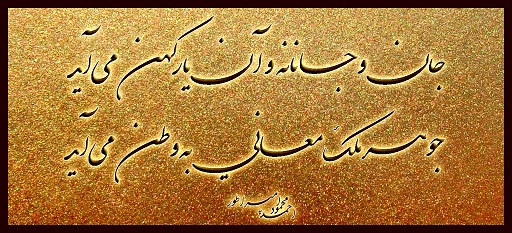 جان و جانانه و آن یار کهن می آید
جوهر ملک معانی به وطن می آید
محمود